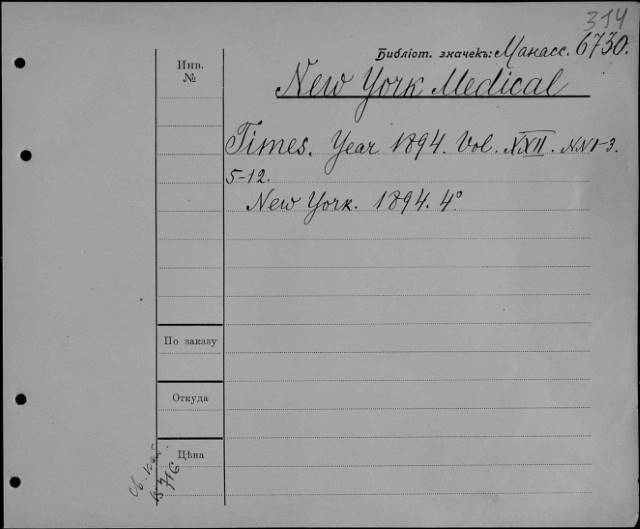 314
Библіот. значекъ: Манасс. 6730.
Инв.
№
New York Medical
Times. Year 1894. Vol. XXII. NN1-3.
5-12.
New York. 1894. 4°
По заказу
Откуда
Цѣна